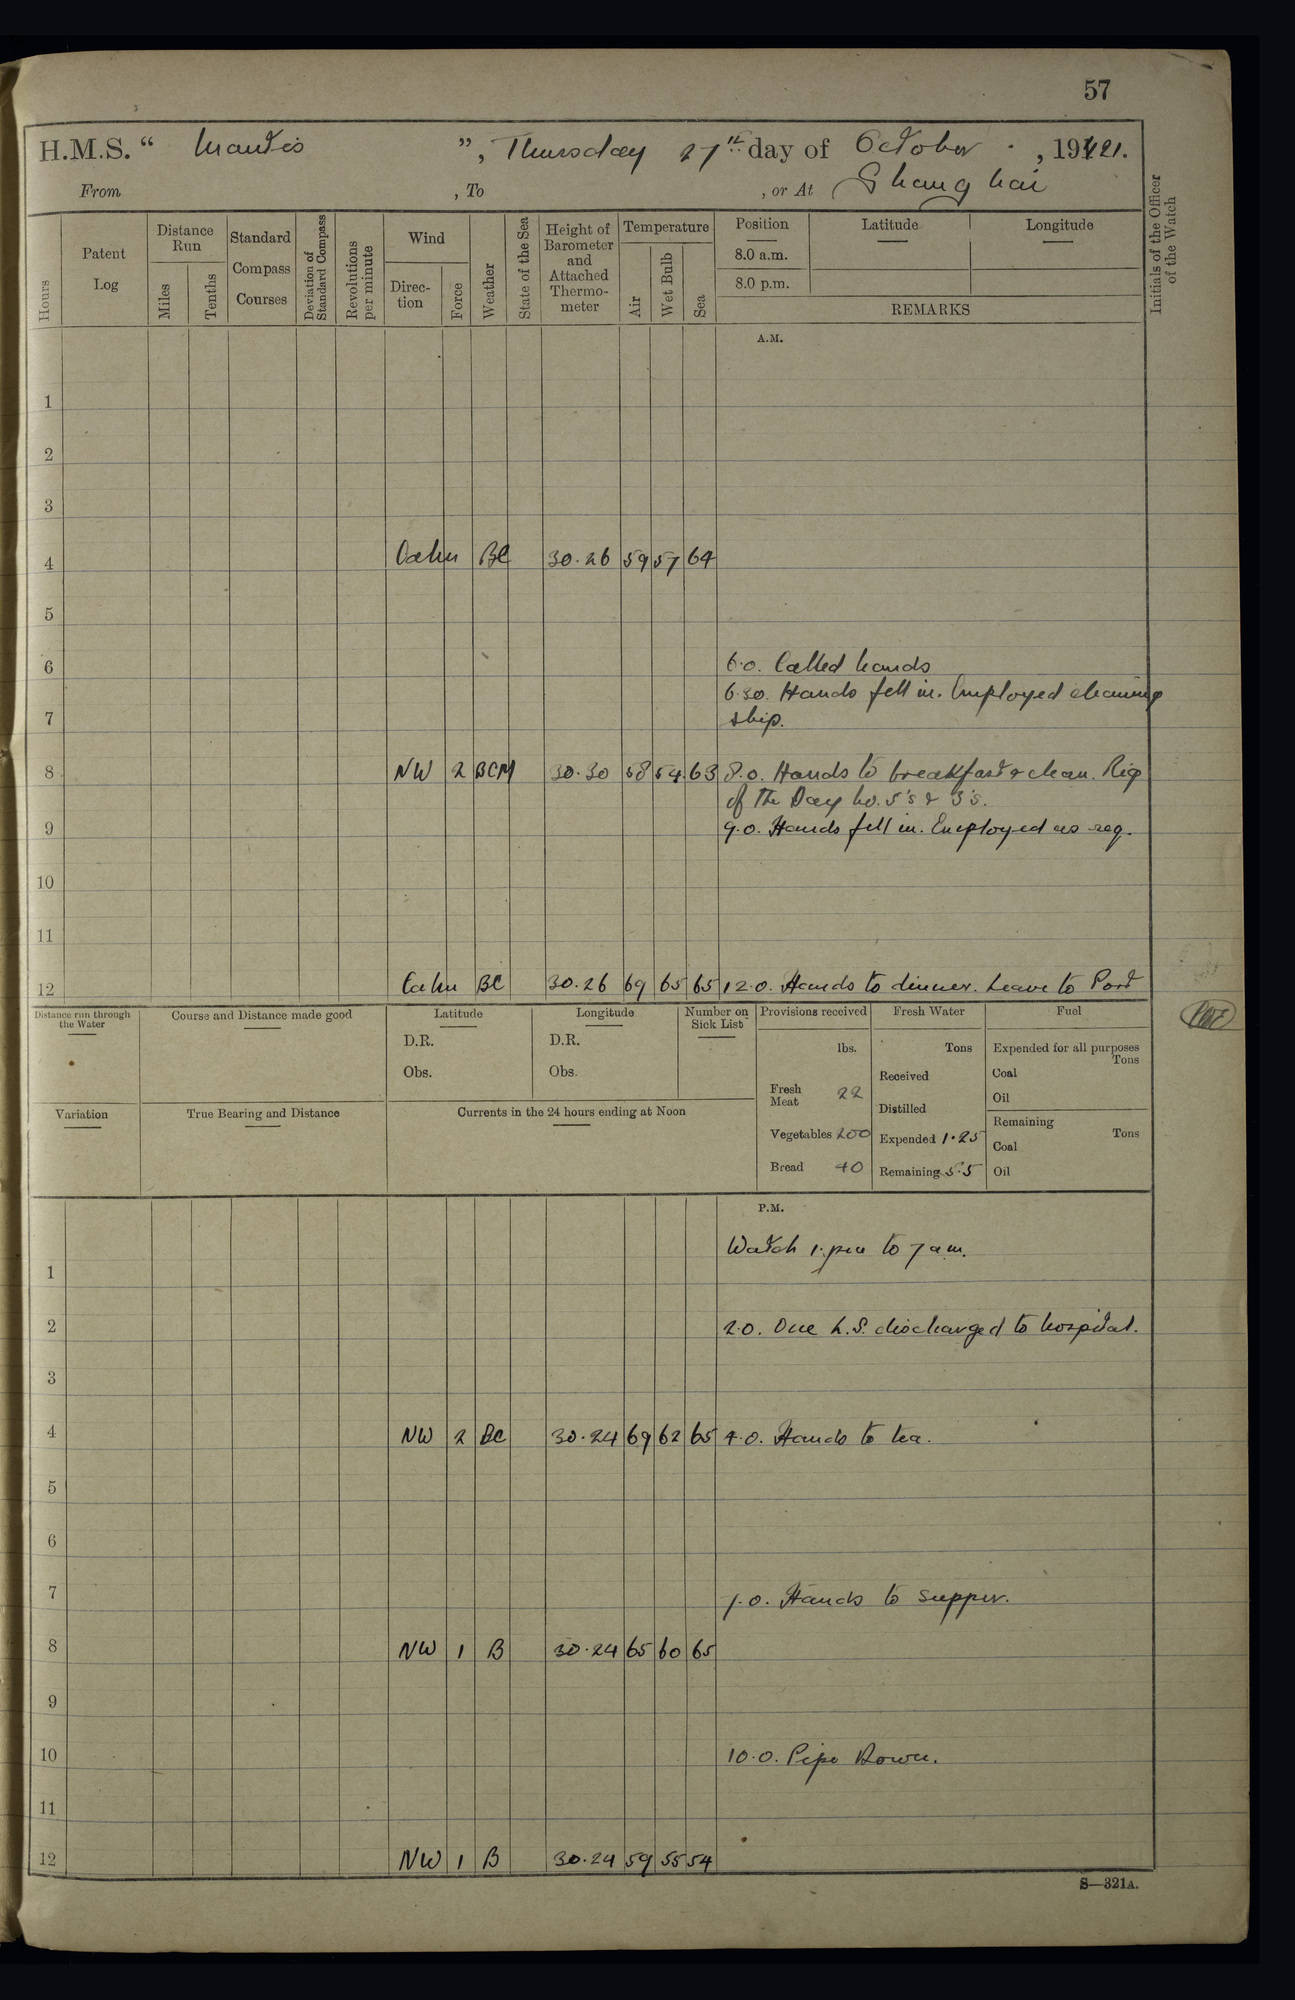 57
H.M.S. “ Mantis ”, Thursday 27th day of October, 1921.
From , To , or At Shanghai
Hours
Patent Log
Distance Run
Miles
Tenths
Standard Compass Courses
Deviation of Standard Compass
Revolutions per minute
Wind
Direction
Force
Weather
State of the Sea
Height of Barometer and Attached Thermometer
Temperature
Air
Wet Bulb
Sea
Position
8.0 a.m.
8.0 p.m.
Latitude
Longitude
REMARKS
Initials of the Officer of the Watch
A.M.
1
2
3
4 Calm BC 30.26 59 57 64
5
6 6.0. Called hands
6.30. Hands fell in. Employed cleaning
7 ship.
8 NW 2 BCM 30.30 58 54 63 8.0. Hands to breakfast & clean. Rig
of the Day No. 5's & 3's.
9 9.0. Hands fell in. Employed as req.
10
11
12 Calm BC 30.26 69 65 65 12.0. Hands to dinner. Leave to Port
Distance run through the Water
Course and Distance made good
Latitude
D.R.
Obs.
Longitude
D.R.
Obs.
Number on Sick List
Provisions received
lbs.
Fresh Meat 22
Vegetables 200
Bread 40
Fresh Water
Tons
Received
Distilled
Expended 1.25
Remaining 5.5
Fuel
Expended for all purposes
Tons
Coal
Oil
Remaining
Tons
Coal
Oil
Variation
True Bearing and Distance
Currents in the 24 hours ending at Noon
P.M.
Watch 1.pm to 7am.
1
2 2.0. One L.S. discharged to hospital.
3
4 NW 2 BC 30.24 69 62 65 4.0. Hands to tea.
5
6
7 7.0. Hands to supper.
8 NW 1 B 30.24 65 60 65
9
10 10.0. Pipe Down.
11
12 NW 1 B 30.24 59 55 54
S—321A.